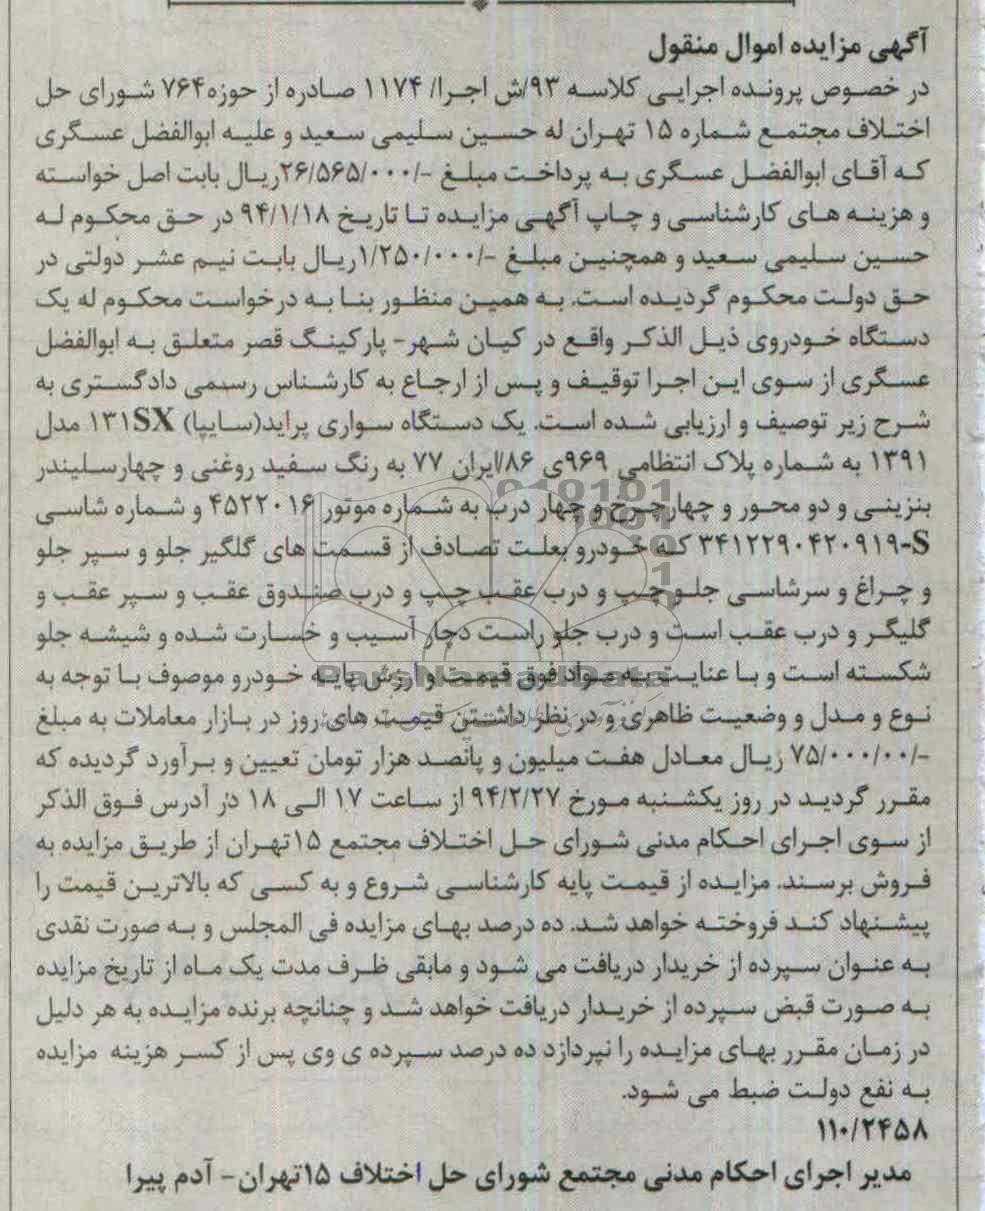 آگهی مزایده اموال منقول
در خصوص پرونده اجرایی کلاسه ۹۳/ش اجرا/ ۱۱۷۴ صادره از حوزه۷۶۴ شورای حل
اختلاف مجتمع شماره ۱۵ تهران له حسین سلیمی سعید و علیه ابوالفضل عسگری
که آقای ابوالفضل عسگری به پرداخت مبلغ -/۲۶/۵۶۵/۰۰۰ریال بابت اصل خواسته
و هزینه های کارشناسی و چاپ آگهی مزایده تا تاریخ ۹۴/۱/۱۸ در حق محکوم له
حسین سلیمی سعید و همچنین مبلغ -/۱/۲۵۰/۰۰۰ریال بابت نیم عشر دولتی در
حق دولت محکوم گردیده است. به همین منظور بنا به درخواست محکوم له یک
دستگاه خودروی ذیل الذکر واقع در کیان شهر- پارکینگ قصر متعلق به ابوالفضل
عسگری از سوی این اجرا توقیف و پس از ارجاع به کارشناس رسمی دادگستری به
شرح زیر توصیف و ارزیابی شده است. یک دستگاه سواری پراید(سایپا) ۱۳۱SX مدل
۱۳۹۱ به شماره پلاک انتظامی ۹۶۹ی ۸۶/ایران ۷۷ به رنگ سفید روغنی و چهارسلیندر
بنزینی و دو محور و چهارچرخ و چهار درب به شماره موتور ۴۵۲۲۰۱۶ و شماره شاسی
S-۳۴۱۲۲۹۰۴۲۰۹۱۹ که خودرو بعلت تصادف از قسمت های گلگیر جلو و سپر جلو
و چراغ و سرشاسی جلو چپ و درب عقب چپ و درب صندوق عقب و سپر عقب و
گلیگر و درب عقب است و درب جلو راست دچار آسیب و خسارت شده و شیشه جلو
شکسته است و با عنایت به مواد فوق قیمت و ارزش پایه خودرو موصوف با توجه به
نوع و مدل و وضعیت ظاهری و در نظر داشتن قیمت های روز در بازار معاملات به مبلغ
-/۷۵/۰۰۰/۰۰ ریال معادل هفت میلیون و پانصد هزار تومان تعیین و برآورد گردیده که
مقرر گردید در روز یکشنبه مورخ ۹۴/۲/۲۷ از ساعت ۱۷ الی ۱۸ در آدرس فوق الذکر
از سوی اجرای احکام مدنی شورای حل اختلاف مجتمع ۱۵تهران از طریق مزایده به
فروش برسند. مزایده از قیمت پایه کارشناسی شروع و به کسی که بالاترین قیمت را
پیشنهاد کند فروخته خواهد شد. ده درصد بهای مزایده فی المجلس و به صورت نقدی
به عنوان سپرده از خریدار دریافت می شود و مابقی ظرف مدت یک ماه از تاریخ مزایده
به صورت قبض سپرده از خریدار دریافت خواهد شد و چنانچه برنده مزایده به هر دلیل
در زمان مقرر بهای مزایده را نپردازد ده درصد سپرده ی وی پس از کسر هزینه مزایده
به نفع دولت ضبط می شود.
۱۱۰/۲۴۵۸
مدیر اجرای احکام مدنی مجتمع شورای حل اختلاف ۱۵تهران- آدم پیرا
ParsNamadData